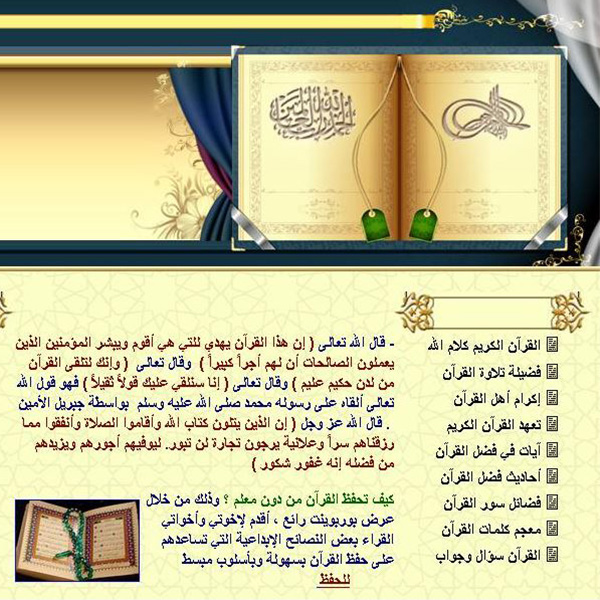 الحمد لله رب العالمين
القرآن الكريم كلام الله
فضيلة تلاوة القرآن
إكرام أهل القرآن
تعهد القرآن الكريم
آيات في فضل القرآن
أحاديث فضل القرآن
فضائل سور القرآن
معجم كلمات القرآن
القرآن سؤال وجواب
- قال الله تعالى ( إن هذا القرآن يهدي للتي هي أقوم ويبشر المؤمنين الذين
يعملون الصالحات أن لهم أجراً كبيراً ) وقال تعالى ( وإنك لتلقى القرآن
من لدن حكيم عليم ) وقال تعالى ( إنا سنلقي عليك قولاً ثقيلاً ) فهو قول الله
تعالى ألقاه على رسوله محمد صلى الله عليه وسلم بواسطة جبريل الأمين
. قال الله عز وجل ( إن الذين يتلون كتاب الله وأقاموا الصلاة وأنفقوا مما
رزقناهم سراً وعلانية يرجون تجارة لن تبور. ليوفيهم أجورهم ويزيدهم
من فضله إنه غفور شكور )
كيف تحفظ القرآن من دون معلم ؟ وذلك من خلال
عرض بوربوينت رائع ، أقدم لإخوتي وأخواتي
القراء بعض النصائح الإبداعية التي تساعدهم
على حفظ القرآن بسهولة وبأسلوب مبسط
للحفظ